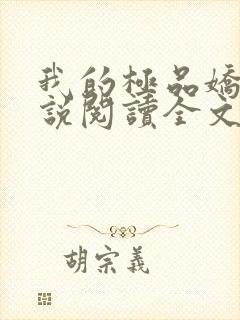 我的極品嬌
說閱讀全文
胡宗義